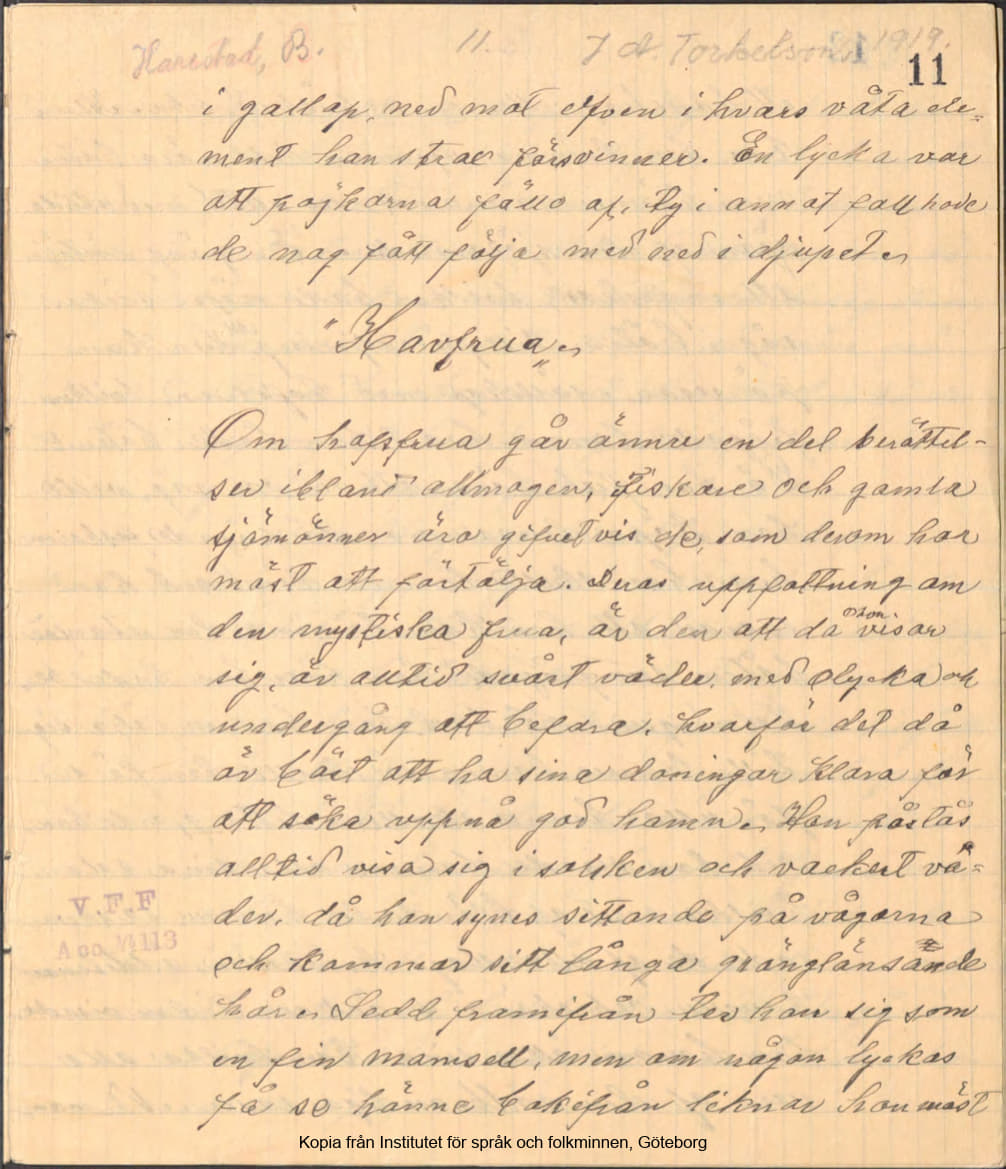 Harestad, B. 11. J A. Torkelson 1919.
11
i gallop, ned mot elfven i hvars våta ele=
ment han strax försvinner. En lycka var
att pojkarna föllo af, ty i annat fall hade
de nog fått följa med ned i djupet.
"Havfrua"
Om hafsfrua går ännu en del berättel-
ser ibland allmogen, fiskare och gamla
sjömänner äro gifvetvis de, som derom har
mäst att förtälja. Deras uppfattning om
den mystiska frua, är den att då hon visar
sig, är alltid svårt väder, med olycka och
undergång att befara, hvarför det då
är bäst att ha sina doningar klara för
att söka uppnå god hamn. Hon påstås
alltid visa sig i solsken och vackert vä=
der, då hon synes sittande på vågorna
och kammar sitt långa grönglänsande
hår. Sedd framifrån ter hon sig som
en fin mamsell, men om någon lyckas
få se hänne bakifrån liknar hon mäst
V.F.F
Acc N 113
Kopia från Institutet för språk och folkminnen, Göteborg